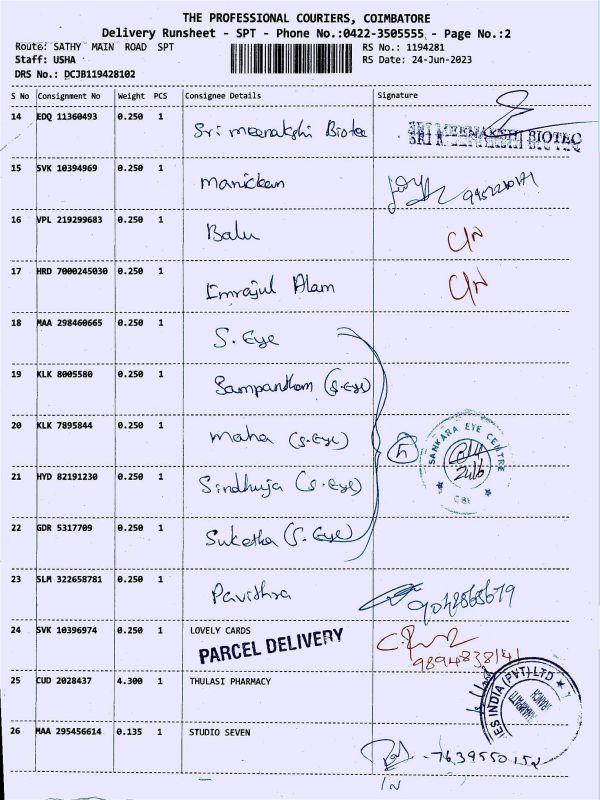 THE PROFESSIONAL COURIERS, COIMBATORE
Delivery Runsheet - SPT - Phone No.:0422-3505555 - Page No.:2
Route: SATHY MAIN ROAD SPT RS No.: 1194281
Staff: USHA RS Date: 24-Jun-2023
DRS No.: DCJB119428102
S No Consignment No Weight PCS Consignee Details Signature
14 EDQ 11360493 0.250 1 Sri meenakshi Biotec SRI MEENAKSHI BIOTEC
15 SVK 10394969 0.250 1 Manickam
16 VPL 219299683 0.250 1 Balu C/N
17 HRD 7000245030 0.250 1 Imrajul Alam C/N
18 MAA 298460665 0.250 1 S. Eye
19 KLK 8005580 0.250 1 Sampantham (S.Eye)
20 KLK 7895844 0.250 1 Maha (S.Eye) 5 SANKARA EYE CENTRE CBE 24/6
21 HYD 82191230 0.250 1 Sindhuja (S.Eye)
22 GDR 5317709 0.250 1 Suketha (S.Eye)
23 SLM 322658781 0.250 1 Pavithra
24 SVK 10396974 0.250 1 LOVELY CARDS
PARCEL DELIVERY 9894838141
25 CUD 2028437 4.300 1 THULASI PHARMACY ES INDIA (PVT) LTD
26 MAA 295456614 0.135 1 STUDIO SEVEN
7639550152